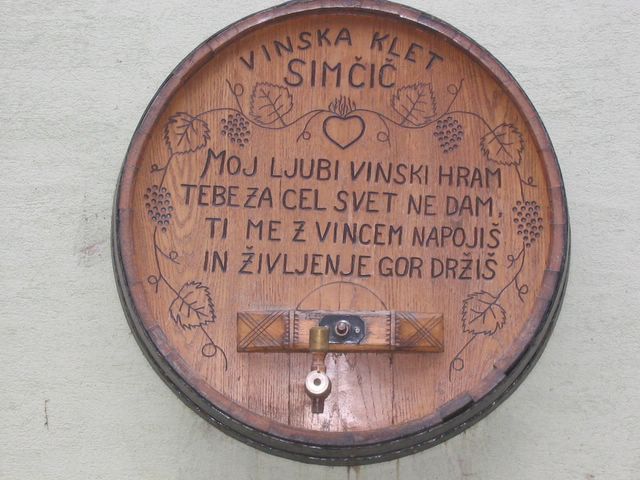 VINSKA KLET
SIMČIČ
MOJ LJUBI VINSKI HRAM
TEBE ZA CEL SVET NE DAM,
TI ME Z VINCEM NAPOJIŠ
IN ŽIVLJENJE GOR DRŽIŠ